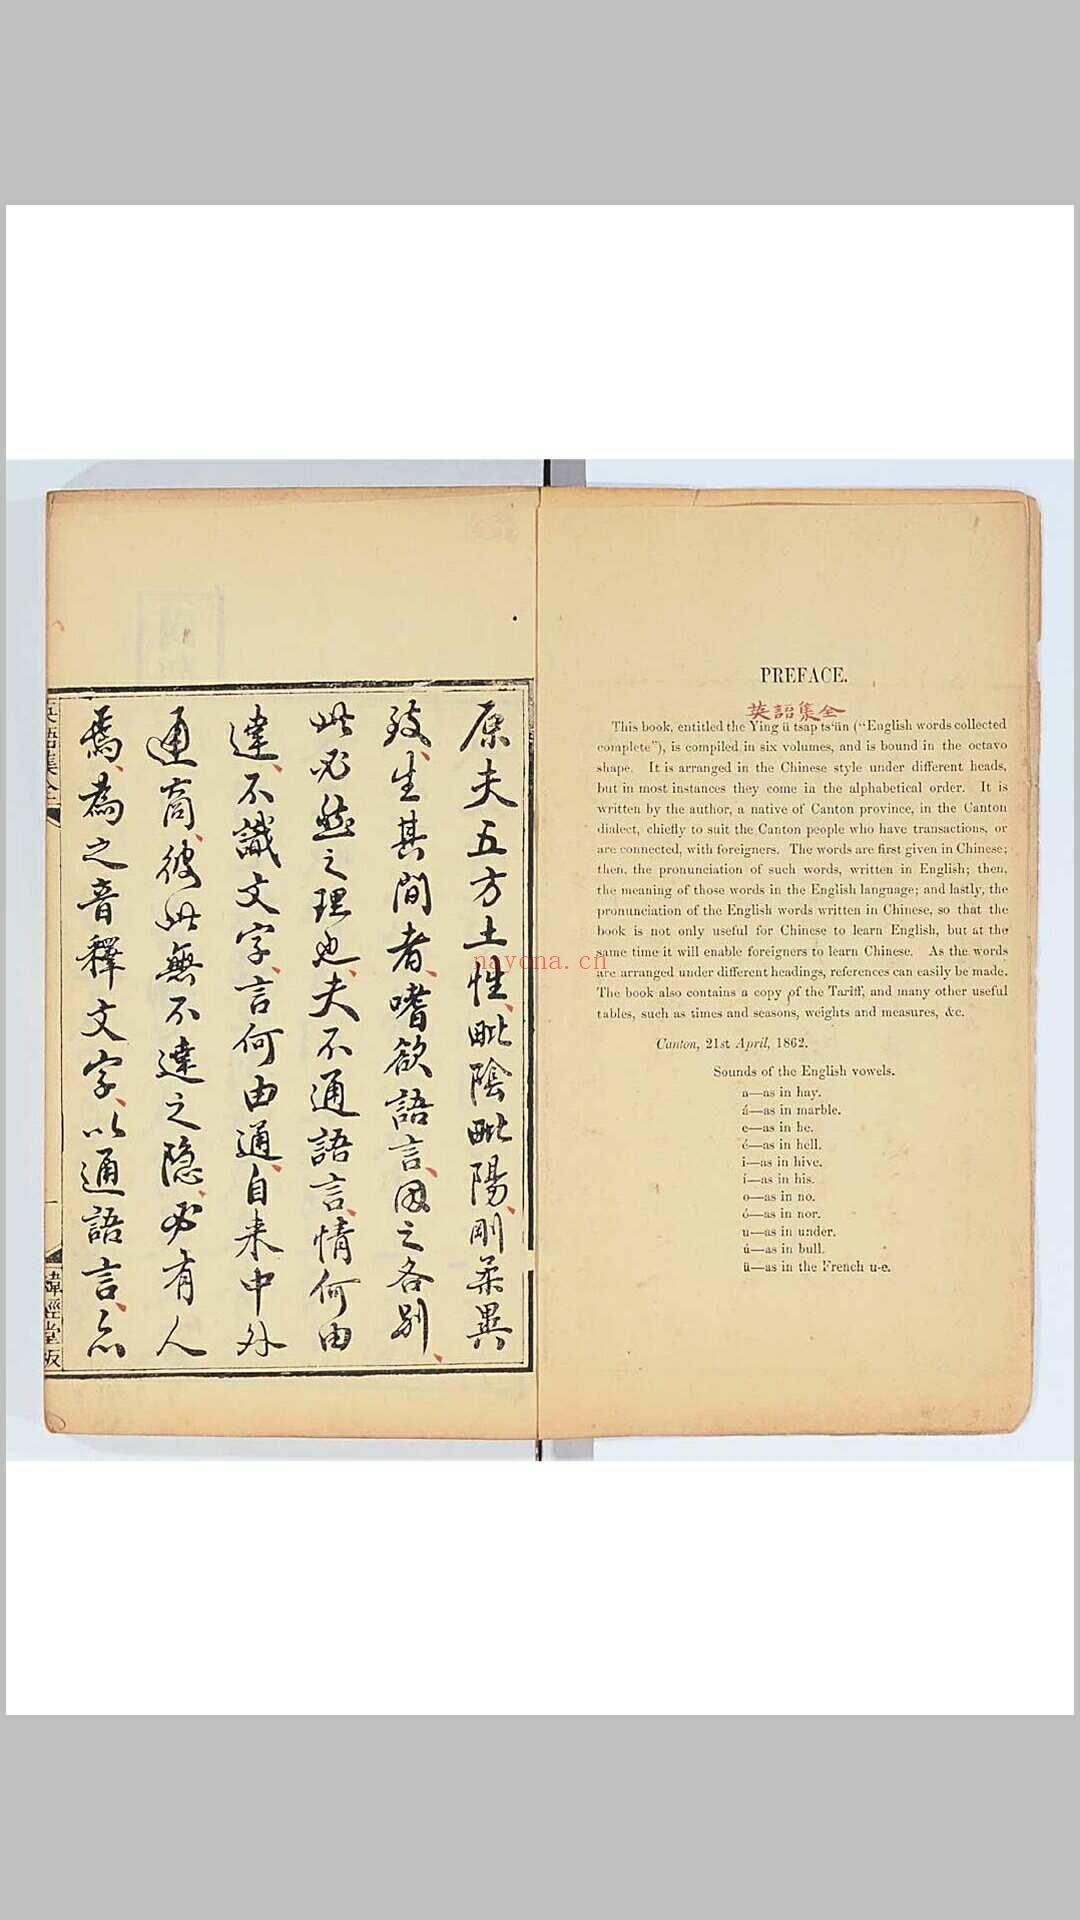 PREFACE.
英語集全
This book, entitled the Ying ü tsap ts‘ün (“English words collected
complete”), is compiled in six volumes, and is bound in the octavo
shape. It is arranged in the Chinese style under different heads,
but in most instances they come in the alphabetical order. It is
written by the author, a native of Canton province, in the Canton
dialect, chiefly to suit the Canton people who have transactions, or
are connected, with foreigners. The words are first given in Chinese;
then, the pronunciation of such words, written in English; then,
the meaning of those words in the English language; and lastly, the
pronunciation of the English words written in Chinese, so that the
book is not only useful for Chinese to learn English, but at the
same time it will enable foreigners to learn Chinese. As the words
are arranged under different headings, references can easily be made.
The book also contains a copy of the Tariff, and many other useful
tables, such as times and seasons, weights and measures, &c.
Canton, 21st April, 1862.
Sounds of the English vowels.
a—as in hay.
á—as in marble.
e—as in he.
é—as in hell.
i—as in hive.
í—as in his.
o—as in no.
ó—as in nor.
u—as in under.
ú—as in bull.
ü—as in the French u-e.
原夫五方土性、毗陰毗陽、剛柔異
致、生其間者、嗜欲語言、因之各別、
此必然之理也、夫不通語言、情何由
達、不識文字、言何由通、自来中外
通商、彼此無不達之隱、必有人
焉、為之音釋文字、以通語言、亦
英語集全
緯經堂版
nayona.cn